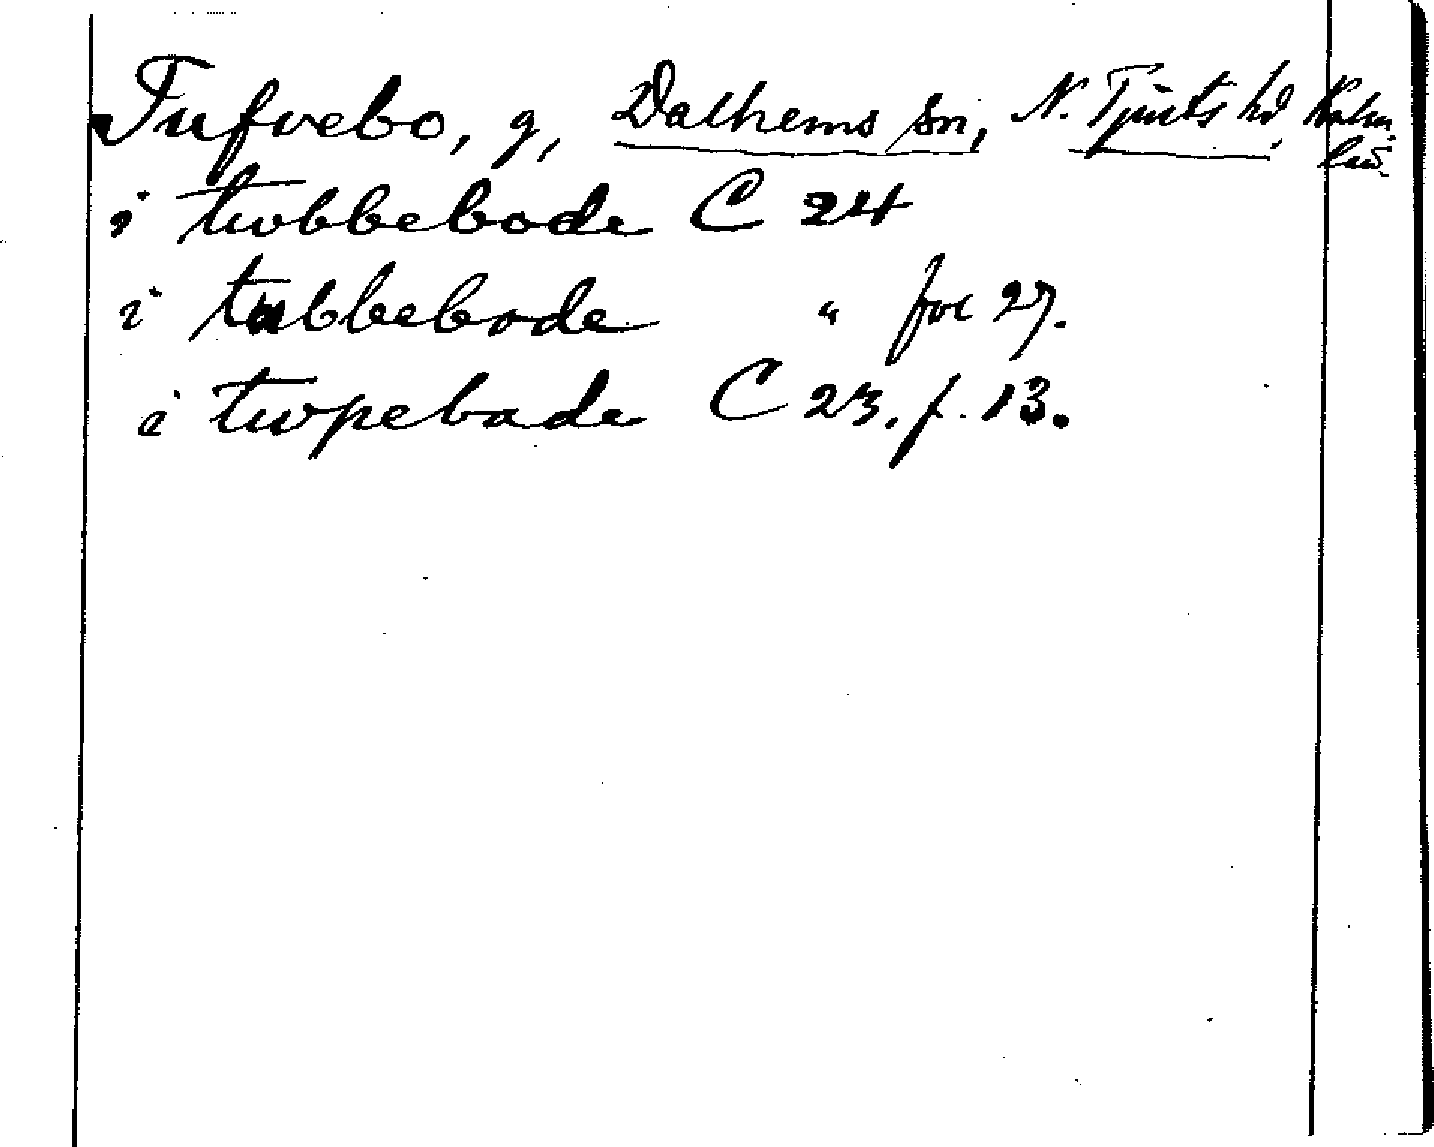 Tufvebo, g, Dalhems sn, N. Tjusts hd, Kalm. län.
i twbbebode C 24
i tubbebode " fol 27.
i twpebade C 23. f. 13.